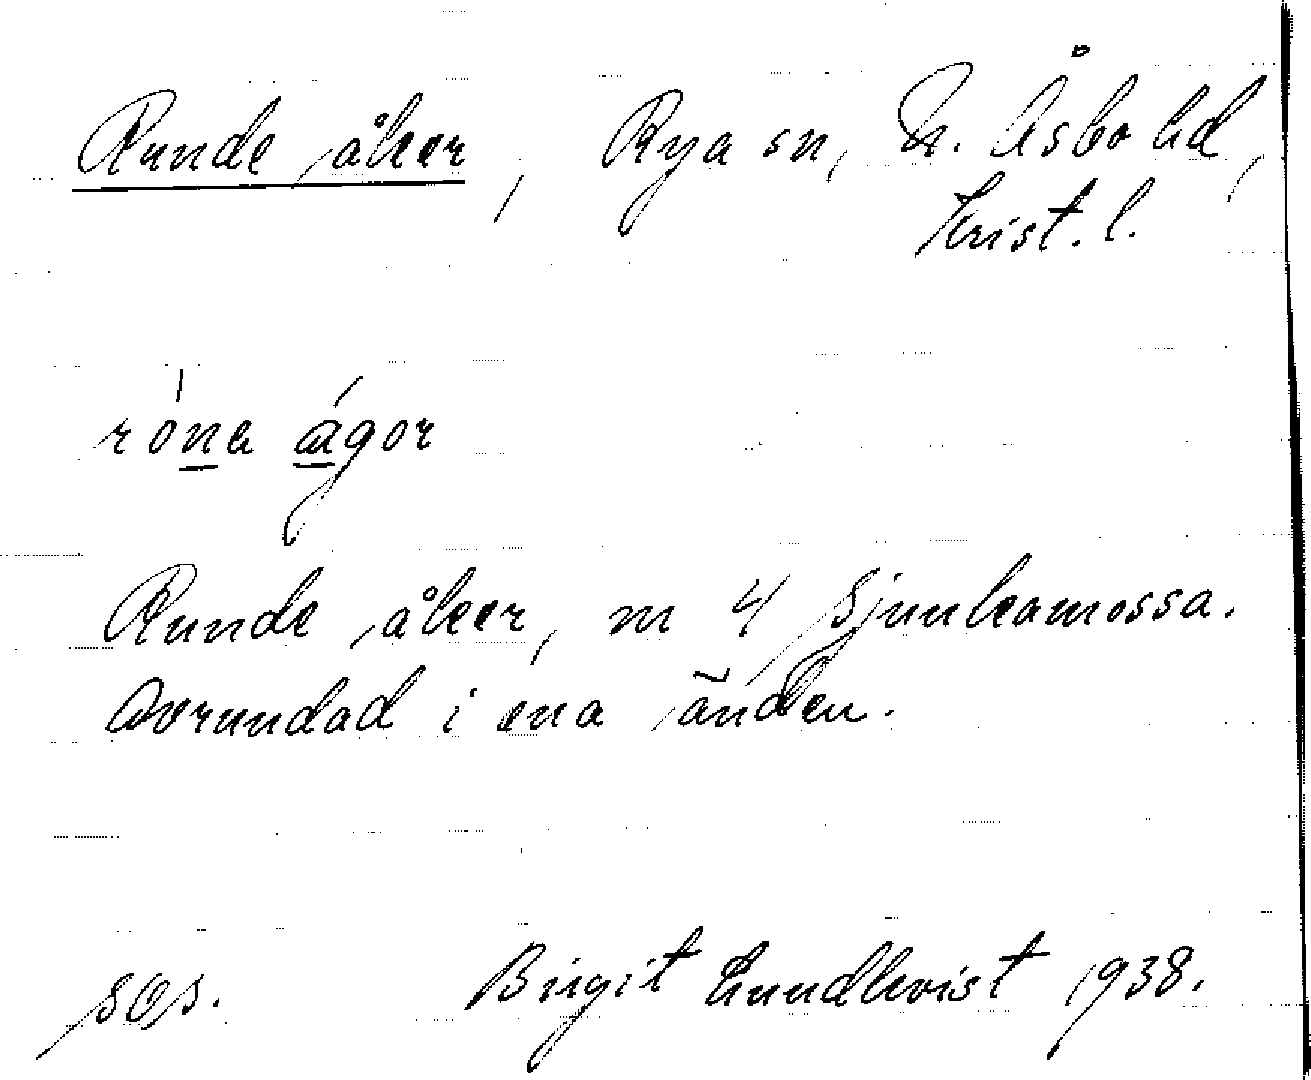 Runde åker, Rya sn, N. Åsbo hd,
Krist. l.
róna ágor
Runde åker, m 4 Sjunkamossa.
Avrundad i ena änden.
sgs. Birgit Lundkvist 1938.